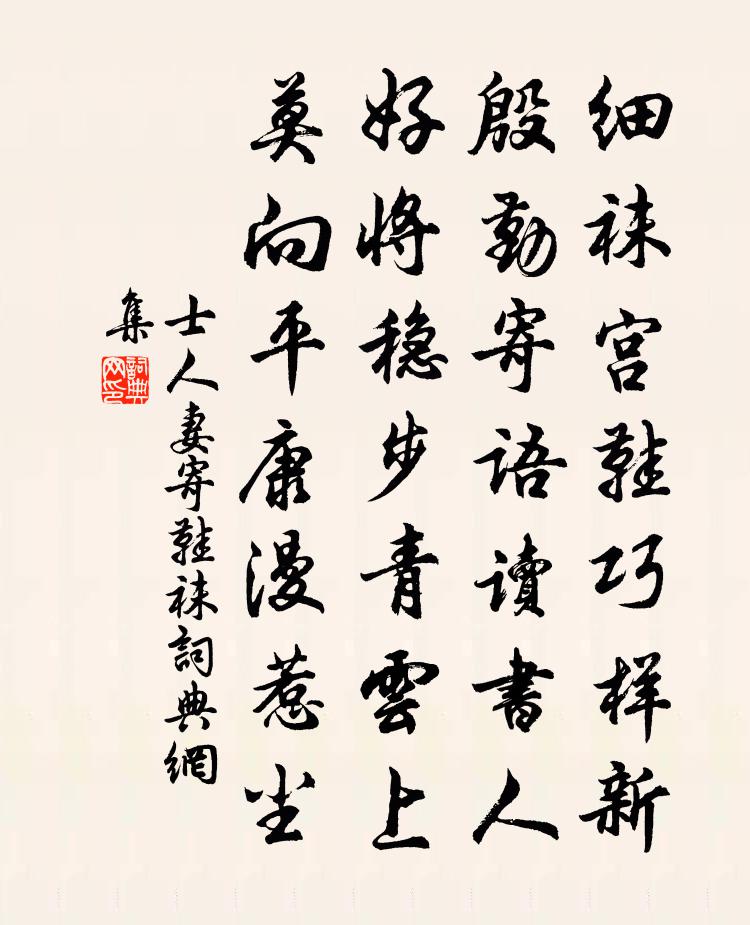 细袜宫鞋巧样新
殷勤寄语读書人
好将稳步青雲上
莫向平康漫惹尘
士人妻寄鞋袜詞典網
集
詞典網印